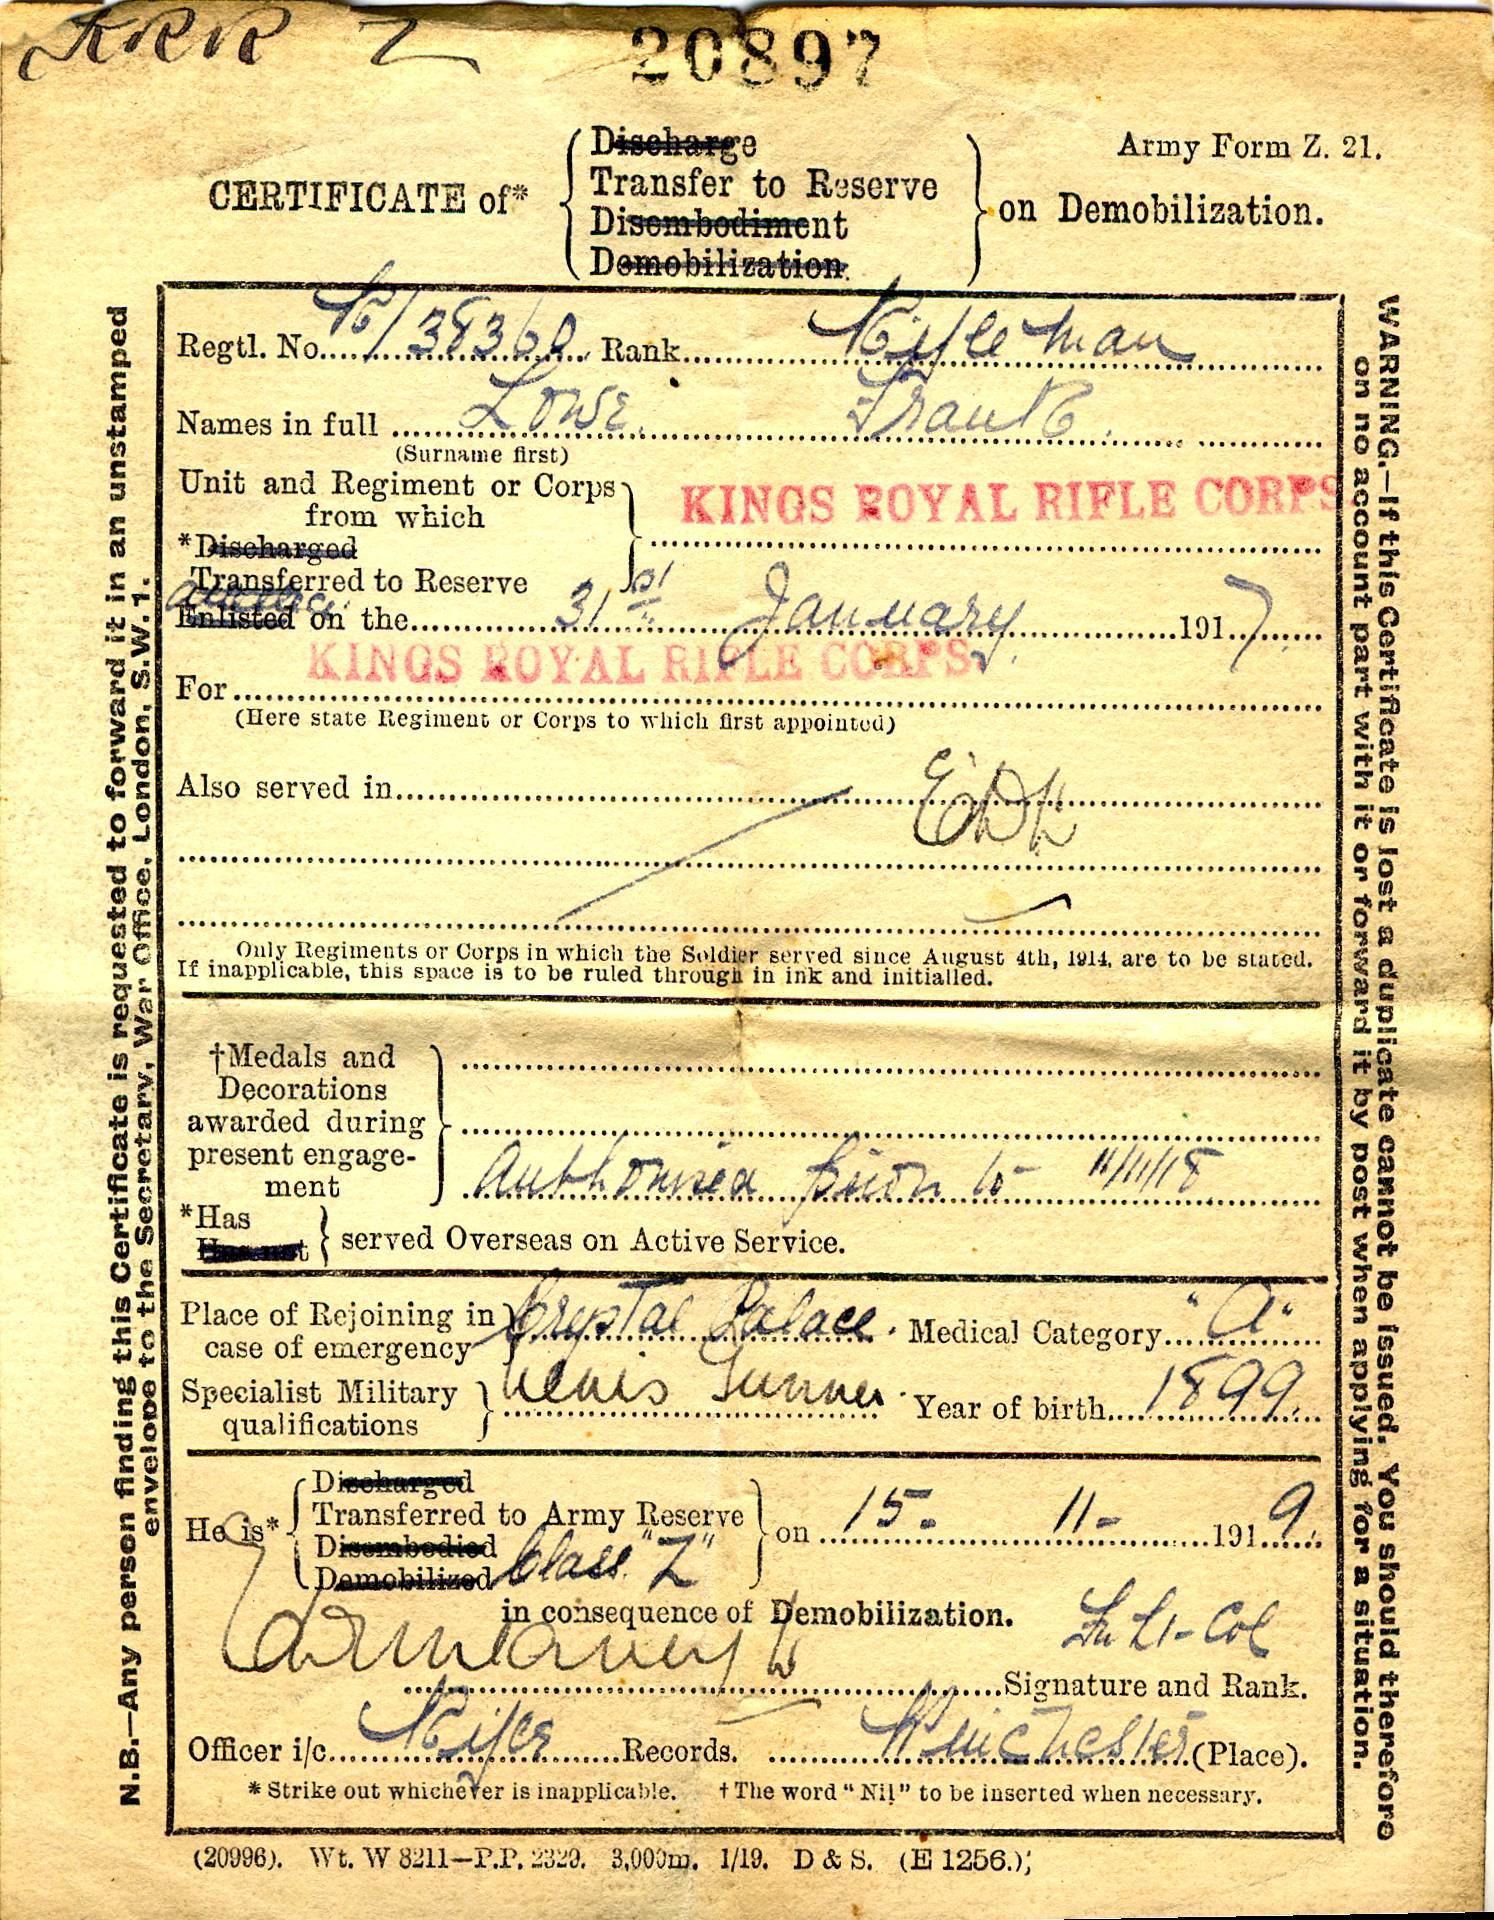 KRR Z 20897
Army Form Z. 21.
CERTIFICATE of* { Discharge
Transfer to Reserve
Disembodiment
Demobilization } on Demobilization.
Regtl. No. R/38360 Rank Rifleman
Names in full Lowe. Frank.
(Surname first)
Unit and Regiment or Corps
from which
KINGS ROYAL RIFLE CORPS
*Discharged
Transferred to Reserve
Enlisted on the 31st January 1917
KINGS ROYAL RIFLE CORPS.
For
(Here state Regiment or Corps to which first appointed)
Also served in
Only Regiments or Corps in which the Soldier served since August 4th, 1914, are to be stated.
If inapplicable, this space is to be ruled through in ink and initialled.
†Medals and
Decorations
awarded during
present engage-
ment
Authorised prior to 11/11/18
*Has
Has not } served Overseas on Active Service.
Place of Rejoining in
case of emergency } Crystal Palace. Medical Category "A"
Specialist Military
qualifications } Lewis Gunner. Year of birth 1899.
He is* { Discharged
Transferred to Army Reserve
Disembodied
Demobilized Class "Z" } on 15- 11- 1919.
in consequence of Demobilization.
Lt-Col
Signature and Rank.
Officer i/c Rifle Records. Winchester (Place).
* Strike out whichever is inapplicable. † The word "Nil" to be inserted when necessary.
(20996). Wt. W 8211—P.P. 2329. 3,000m. 1/19. D & S. (E 1256.);
N.B.—Any person finding this Certificate is requested to forward it in an unstamped
envelope to the Secretary, War Office, London, S.W. 1.
WARNING.—If this Certificate is lost a duplicate cannot be issued. You should therefore
on no account part with it or forward it by post when applying for a situation.